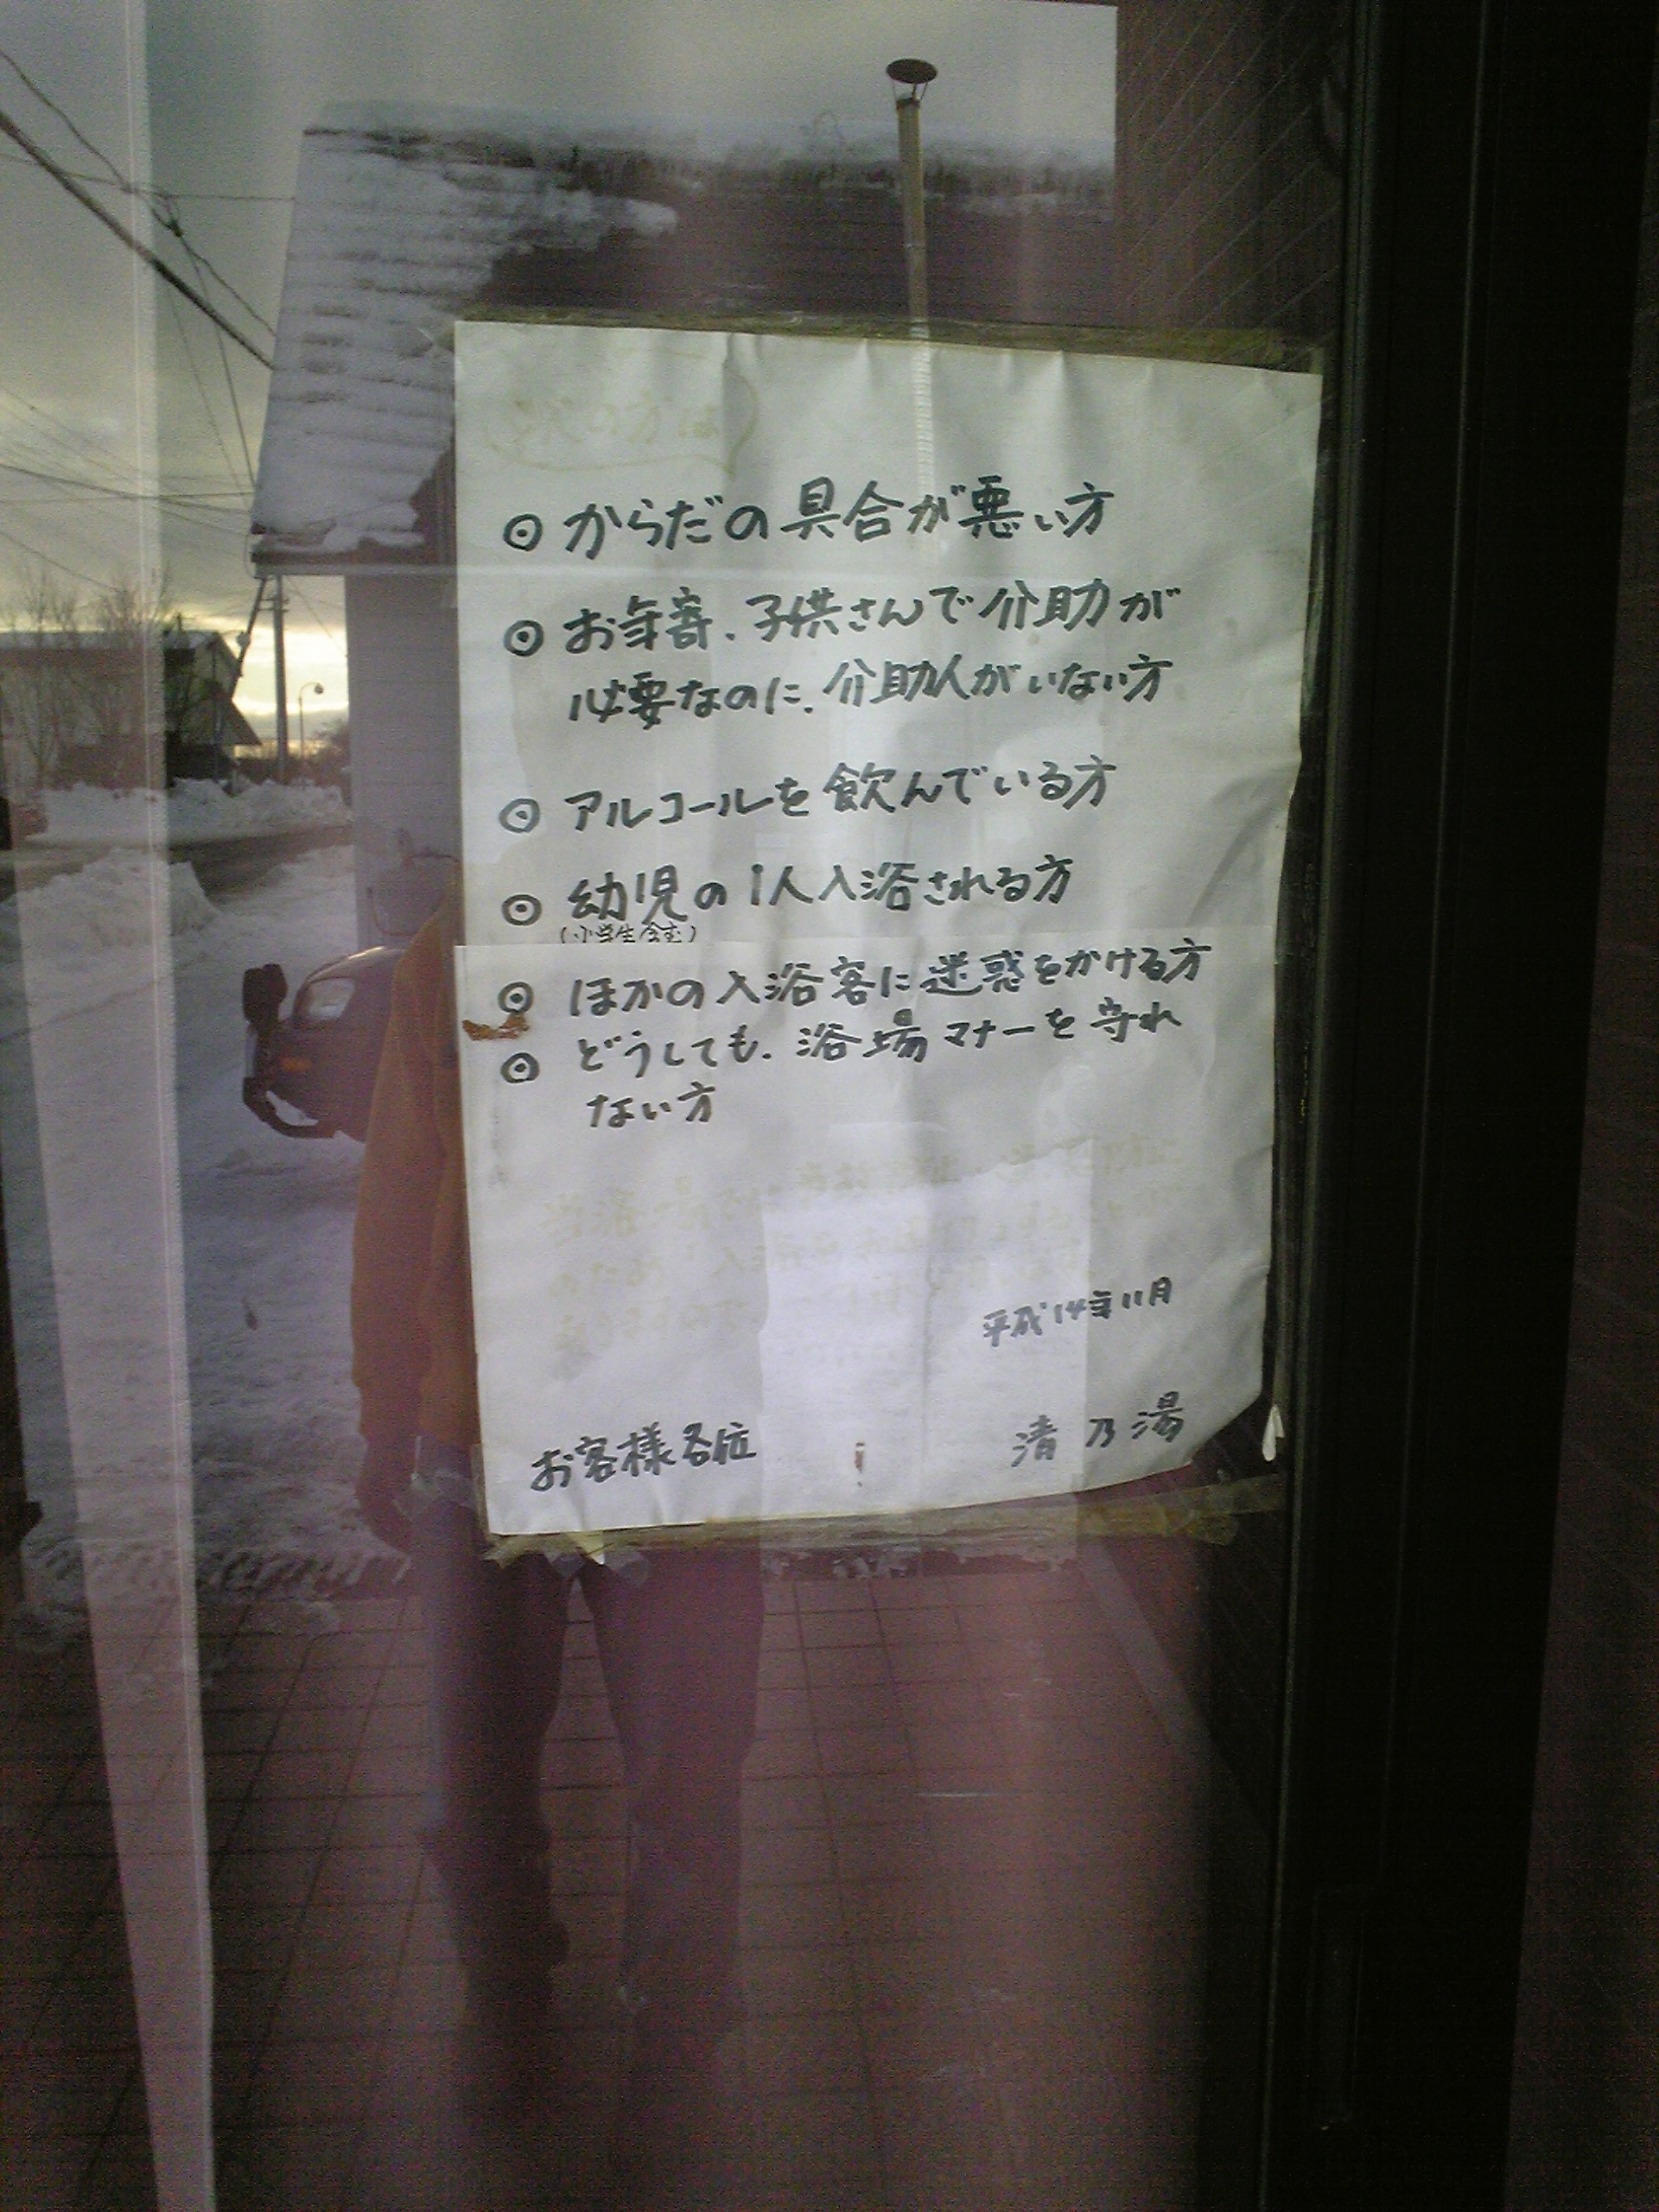 次の方は
◎ からだの具合が悪い方
◎ お年寄.子供さんで介助が
必要なのに.介助人がいない方
◎ アルコールを飲んでいる方
◎ 幼児の1人入浴される方
(小学生含む)
◎ ほかの入浴客に迷惑をかける方
◎ どうしても.浴場マナーを守れ
ない方
平成14年11月
お客様各位
清乃湯